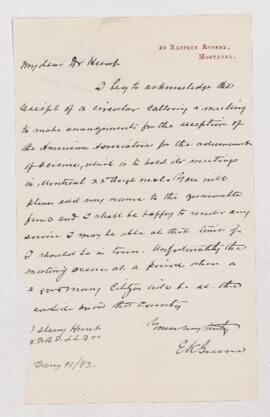 20 Redpath Avenue,
Montreal.
My dear Dr Hunt
I beg to acknowledge the
receipt of a circular calling a meeting
to make arrangements for the reception of
the American Association for the advancement
of science, which is to hold its meetings
in Montreal next. You will
please add my name to the guarantee
fund and I shall be happy to render any
service I may be able at that time if
I should be in town. Unfortunately the
meeting occurs at a period when a
good many Citizens will be at the
seaside or in the Country
Yours very truly
E K Greene
T Sterry Hunt